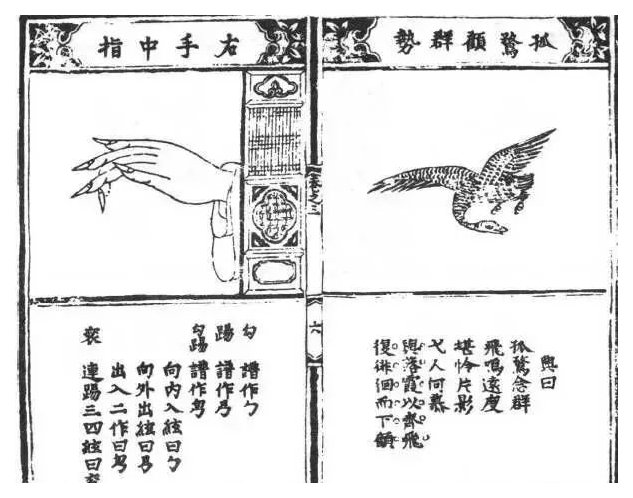 孤鶩顧群勢
興曰
孤鶩念群
飛鳴遠度
堪怜片影
弋人何慕
與落霞以齊飛
復徘徊而下顧
卷之三
六
右手中指
勾 譜作勹
踢 譜作
勾踢 譜作
向內入絃曰勹
向外出絃曰
出入二作曰
連踢三四絃曰